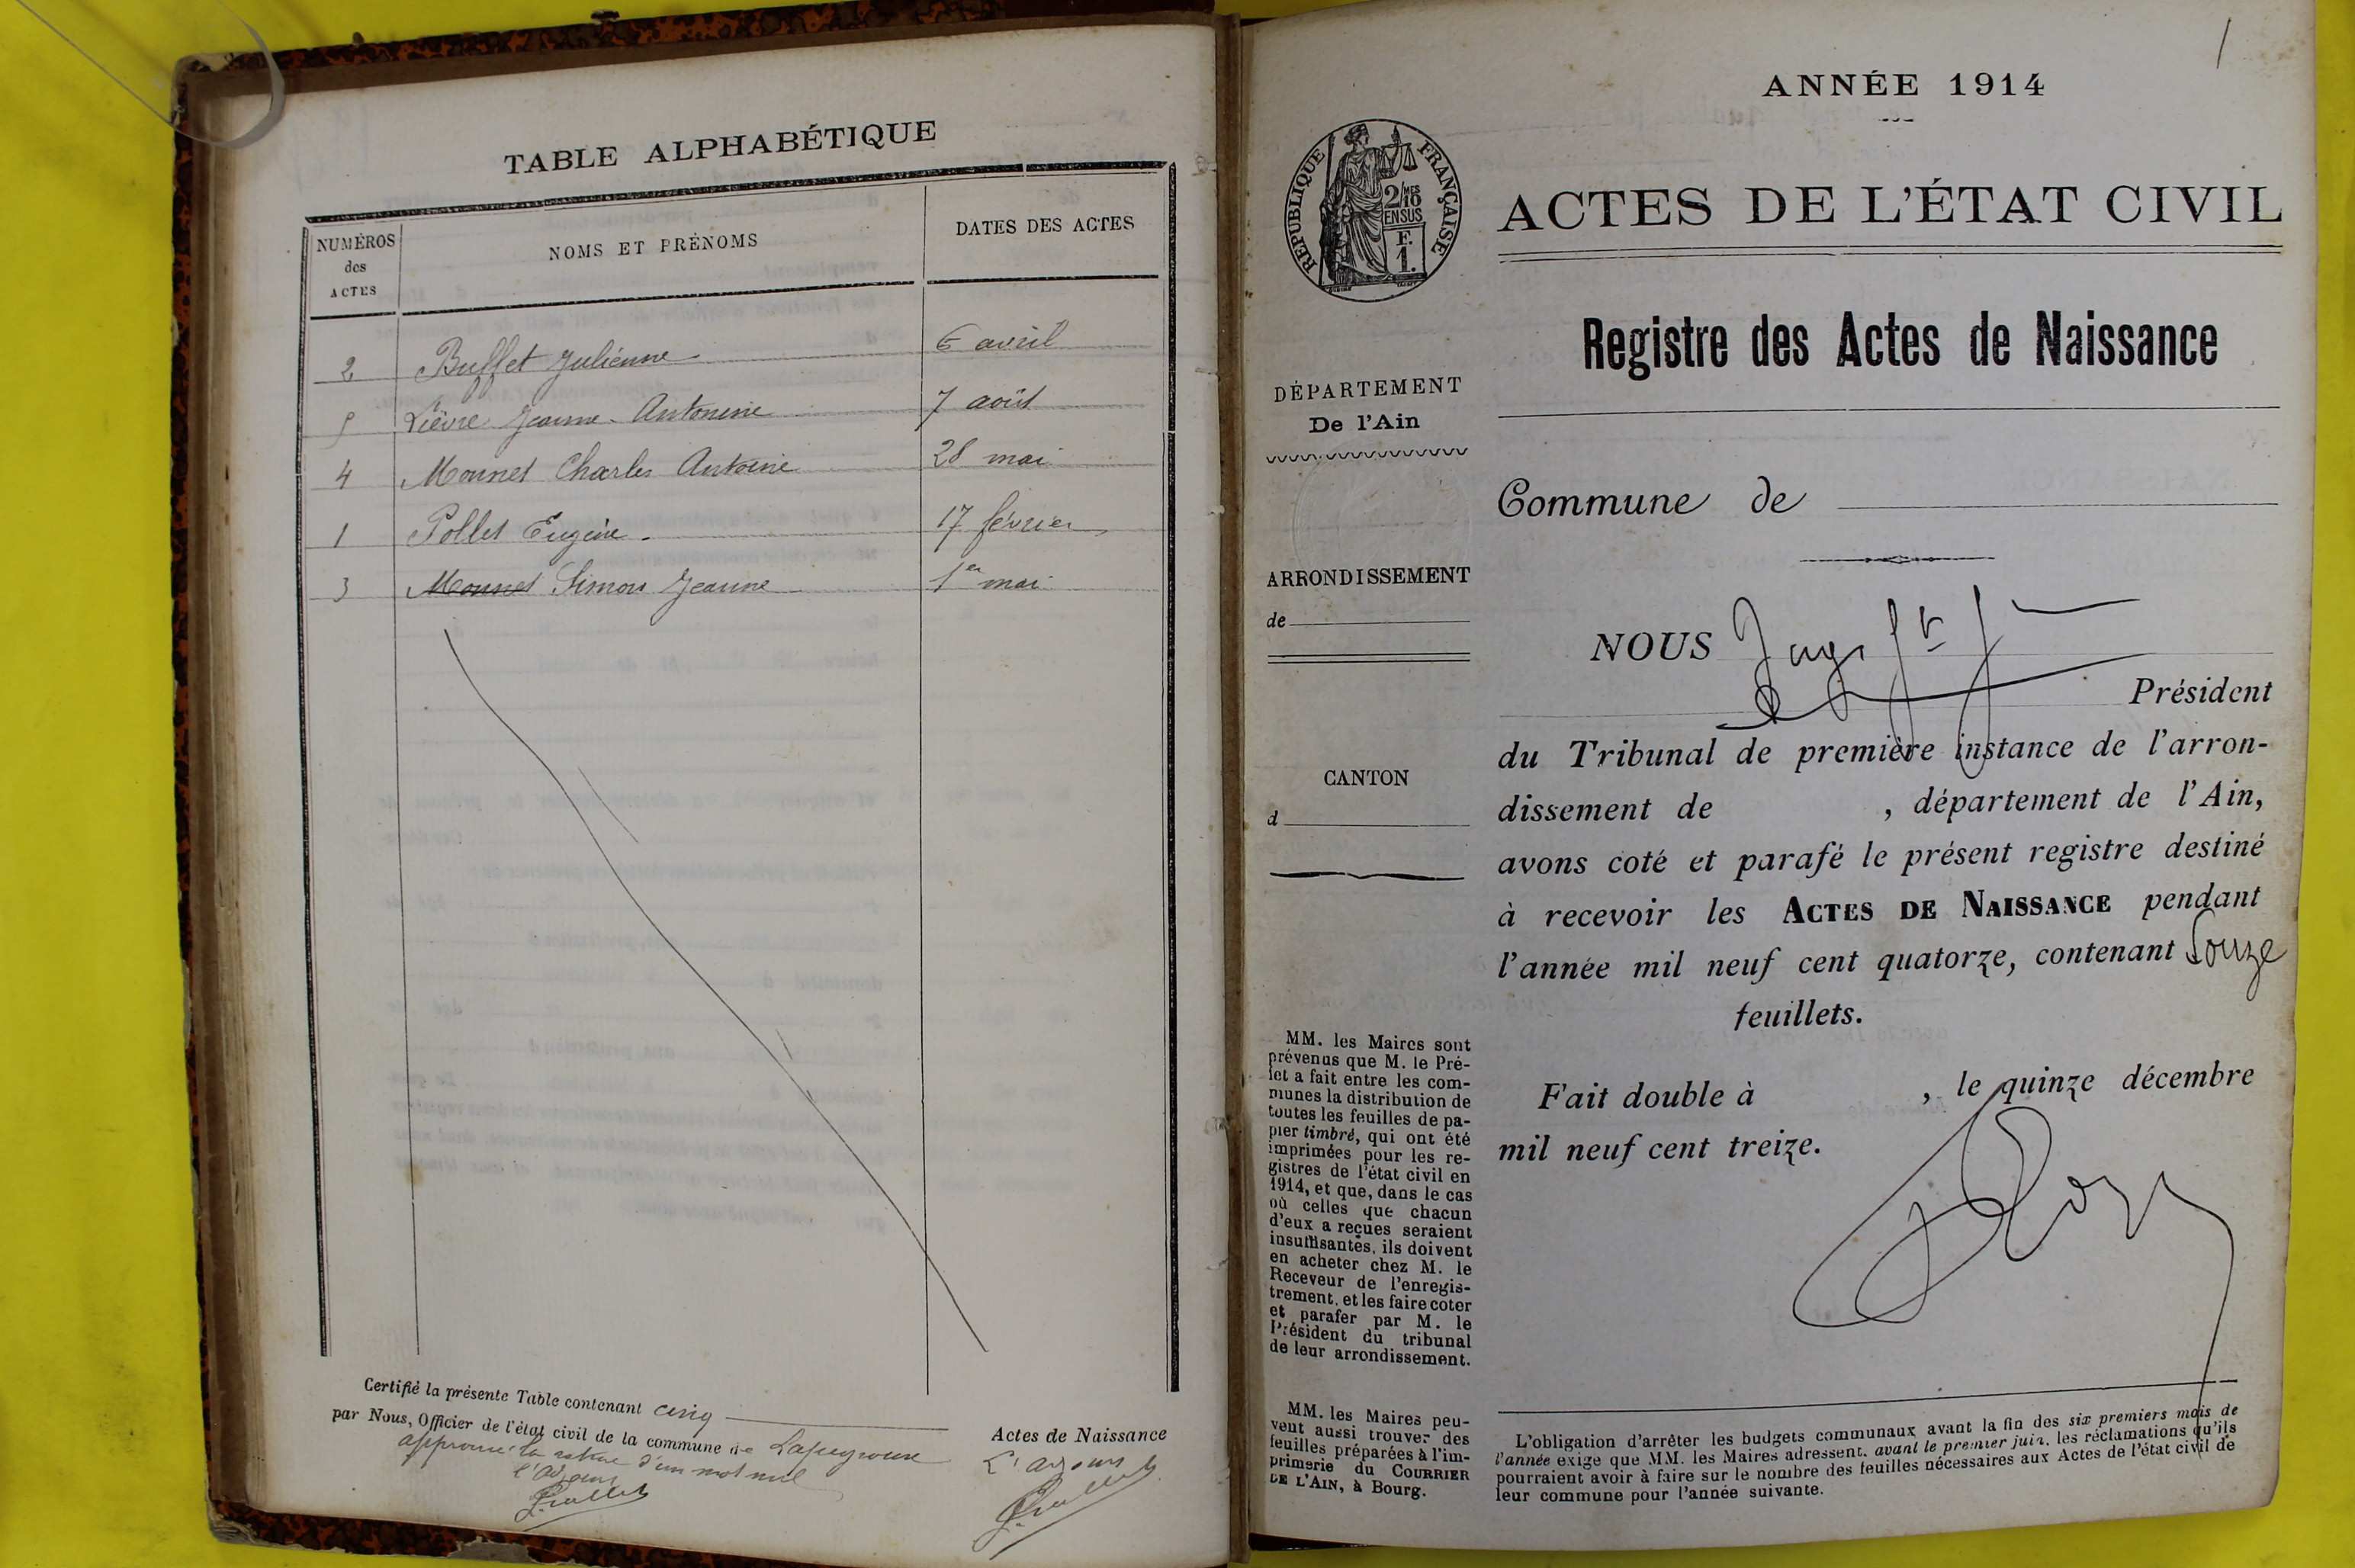 TABLE ALPHABÉTIQUE
NUMÉROS des ACTES
NOMS ET PRÉNOMS
DATES DES ACTES
2 Buffet Julienne 6 avril
5 Lièvre Jeanne-Antonine 7 août
4 Monnet Charles Antoine 28 mai
1 Pollet Eugène. 17 février
3 Monnet Simon Jeanne 1er mai
Certifié la présente Table contenant cinq
par Nous, Officier de l'état civil de la commune de Lapeyrouse
Actes de Naissance
approuvé la rature d'un mot nul
L'adjoint
l'adjoint
1
ANNÉE 1914
RÉPUBLIQUE FRANÇAISE
2/MES
10
EN SUS
F.
1.
ACTES DE L'ÉTAT CIVIL
Registre des Actes de Naissance
DÉPARTEMENT
De l'Ain
Commune de
ARRONDISSEMENT
de
NOUS
Président
CANTON
d
du Tribunal de première instance de l'arron-
dissement de , département de l'Ain,
avons coté et parafé le présent registre destiné
à recevoir les ACTES DE NAISSANCE pendant
l'année mil neuf cent quatorze, contenant
feuillets.
Fait double à , le quinze décembre
mil neuf cent treize.
MM. les Maires sont
prévenus que M. le Pré-
fet a fait entre les com-
munes la distribution de
toutes les feuilles de pa-
pier timbré, qui ont été
imprimées pour les re-
gistres de l'état civil en
1914, et que, dans le cas
où celles que chacun
d'eux a reçues seraient
insuffisantes, ils doivent
en acheter chez M. le
Receveur de l'enregis-
trement, et les faire coter
et parafer par M. le
Président du tribunal
de leur arrondissement.
MM. les Maires peu-
vent aussi trouver des
feuilles préparées à l'im-
primerie du COURRIER
DE L'AIN, à Bourg.
L'obligation d'arrêter les budgets communaux avant la fin des six premiers mois de
l'année exige que MM. les Maires adressent, avant le premier juin, les réclamations qu'ils
pourraient avoir à faire sur le nombre des feuilles nécessaires aux Actes de l'état civil de
leur commune pour l'année suivante.